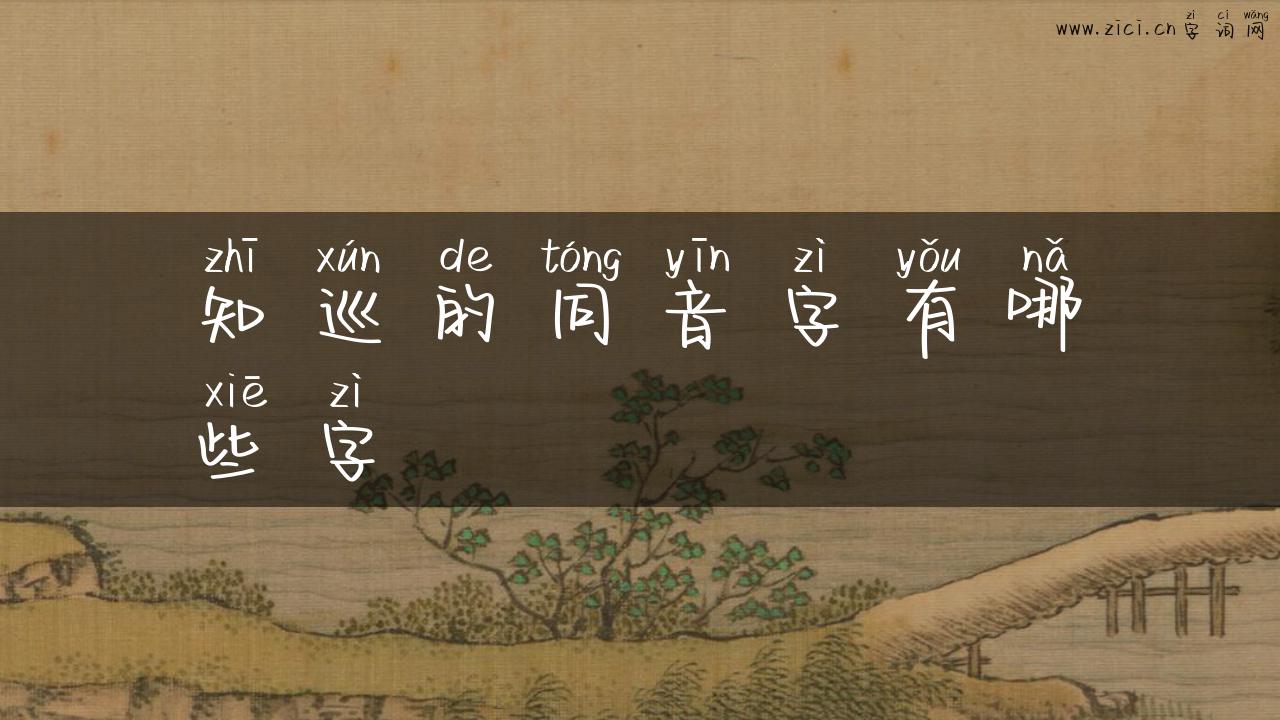 zì cí wǎng
www.zici.cn 字 词 网
zhī xún de tóng yīn zì yǒu nǎ
知 巡 的 同 音 字 有 哪
xiē zì
些 字